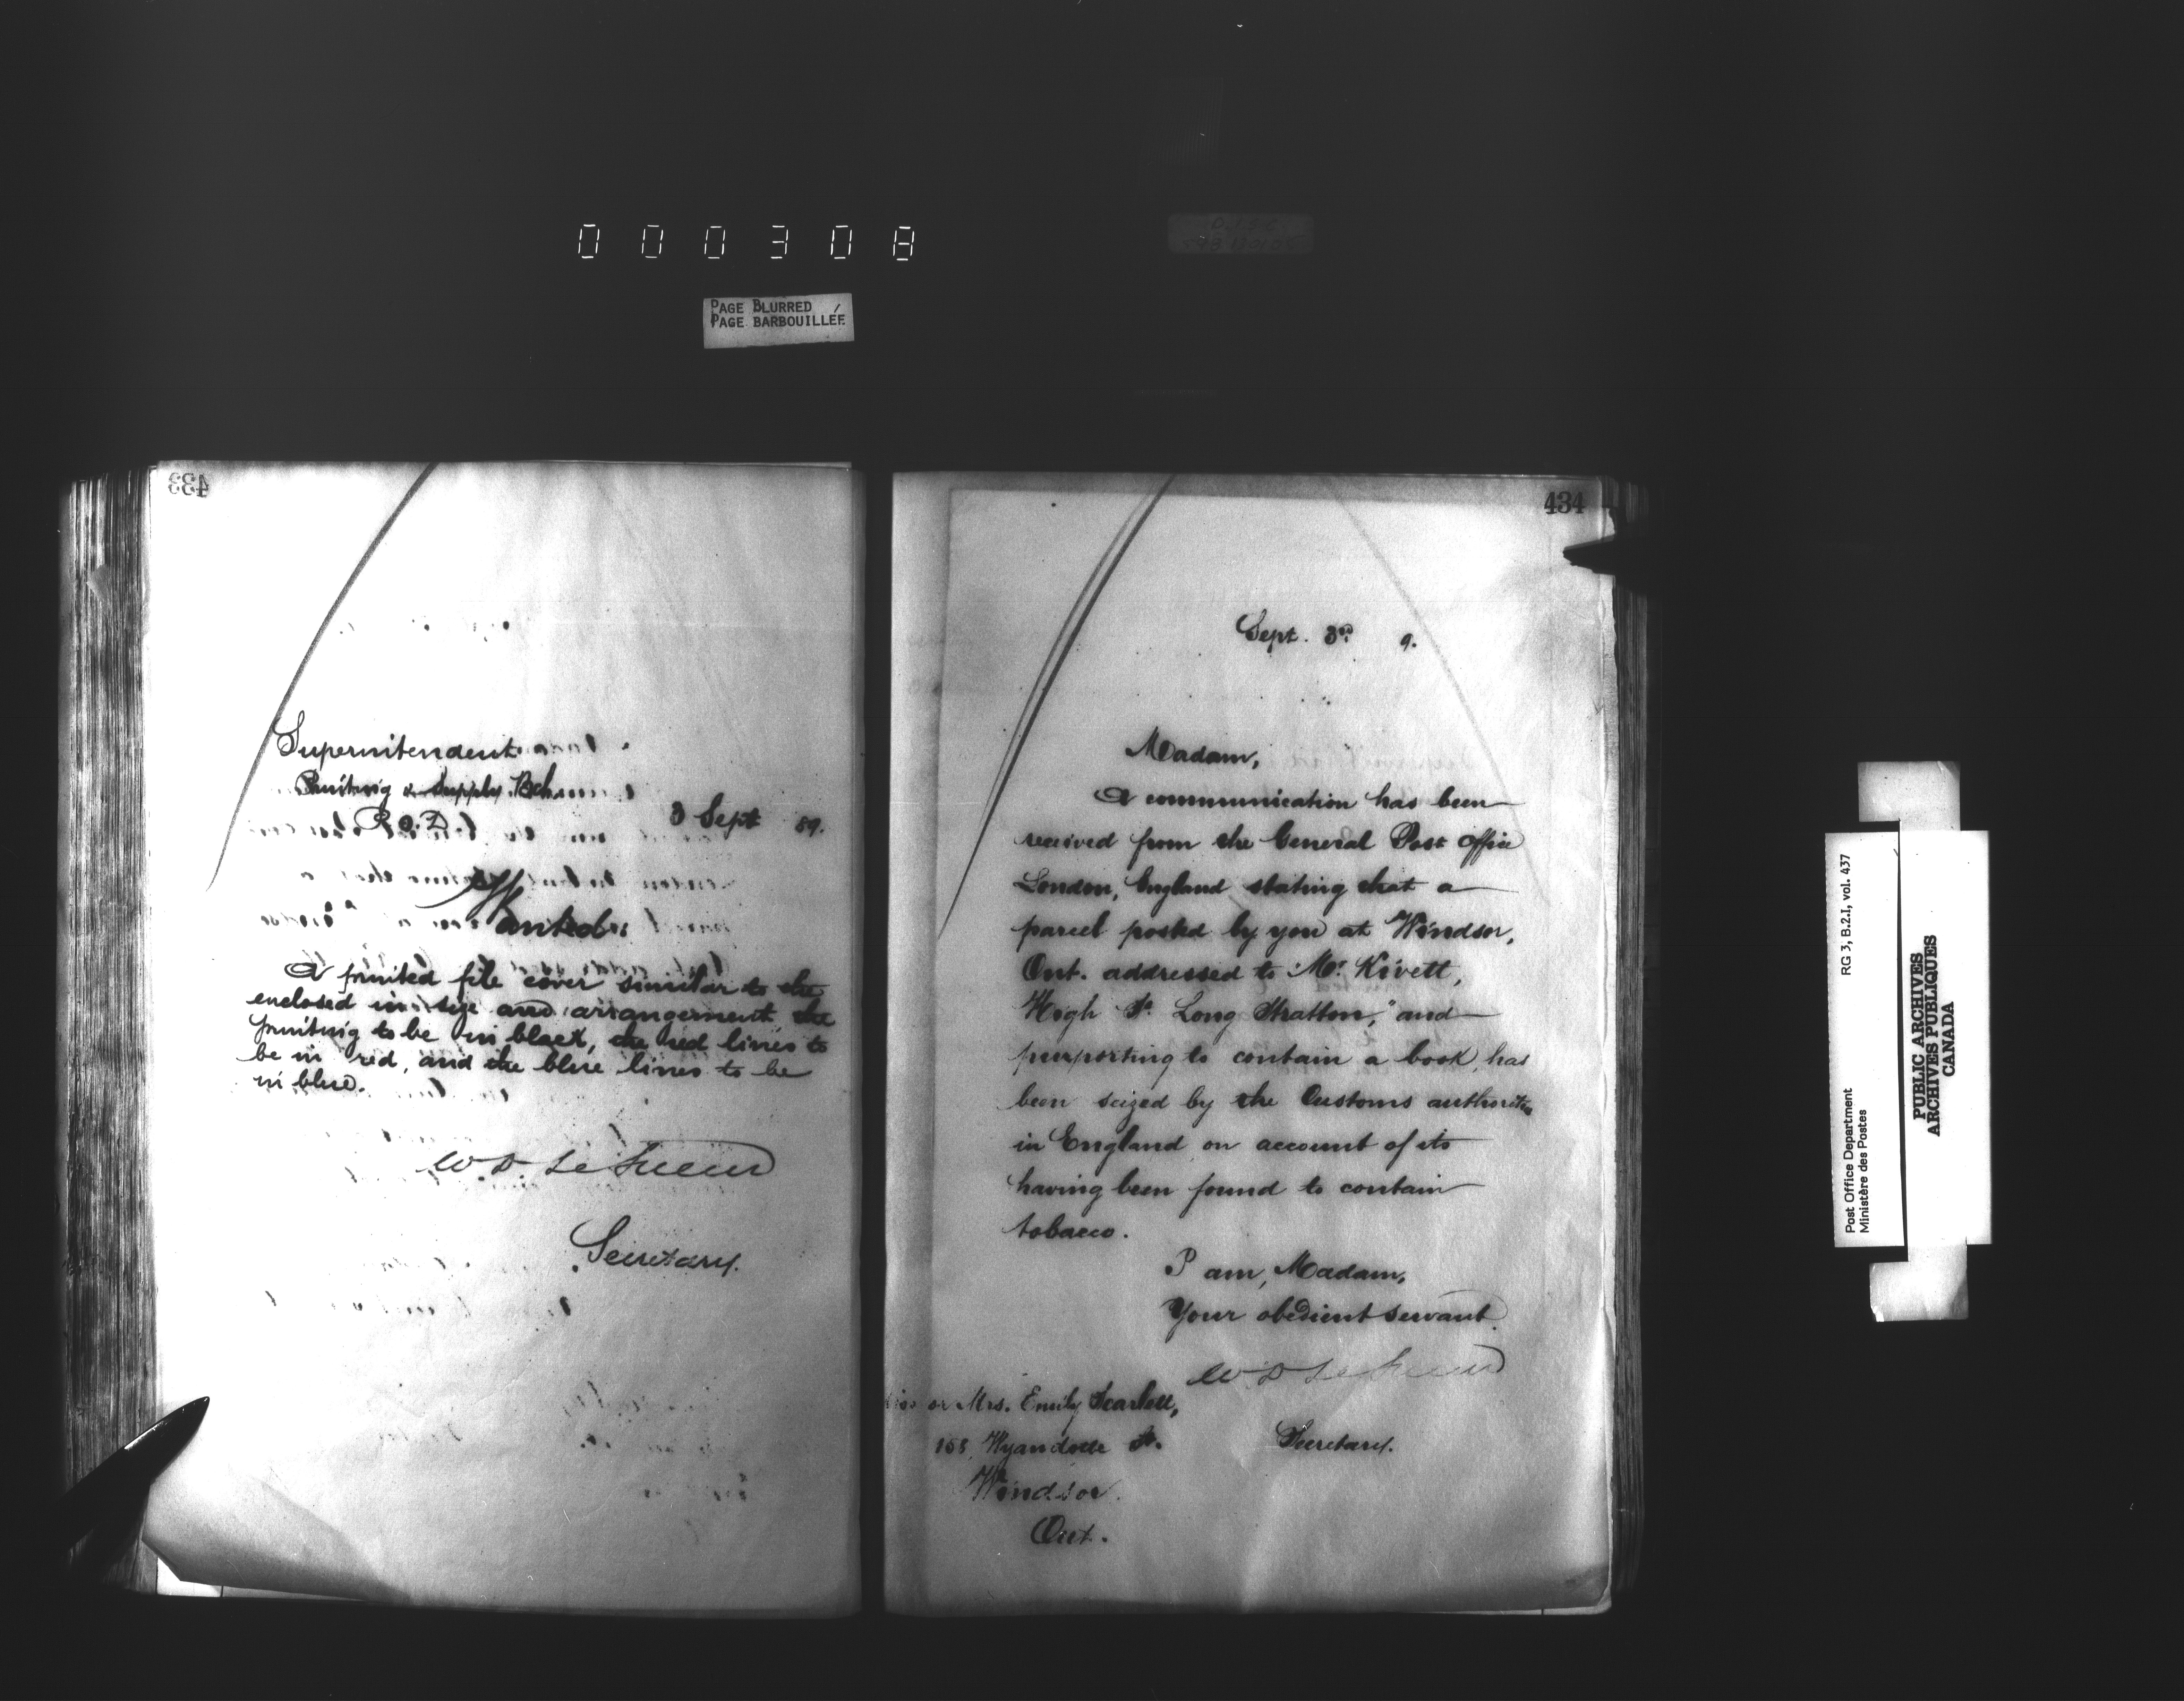 000308
PAGE BLURRED
PAGE BARBOUILLÉE
433
Superintendent
Printing & Supply Bch
P.O.D
3 Sept 89.
Wanted:
A printed file cover similar to the
enclosed in size and arrangement the
printing to be in black, the red lines to
be in red, and the blue lines to be
in blue.
W D LeSueur
Secretary.
434
Sept. 3rd 9.
Madam,
A communication has been
received from the General Post Office
London, England stating that a
parcel posted by you at Windsor,
Ont. addressed to "Mr. Kivett,
High St. Long Stratton," and
purporting to contain a book, has
been seized by the Customs authorities
in England on account of its
having been found to contain
tobacco.
I am, Madam,
Your obedient servant
W D LeSueur
Secretary.
or Mrs. Emily Scarlett,
158, Wyandotte St.
Windsor.
Ont.
Post Office Department
Ministère des Postes
RG 3, B.2.I, vol. 437
PUBLIC ARCHIVES
ARCHIVES PUBLIQUES
CANADA